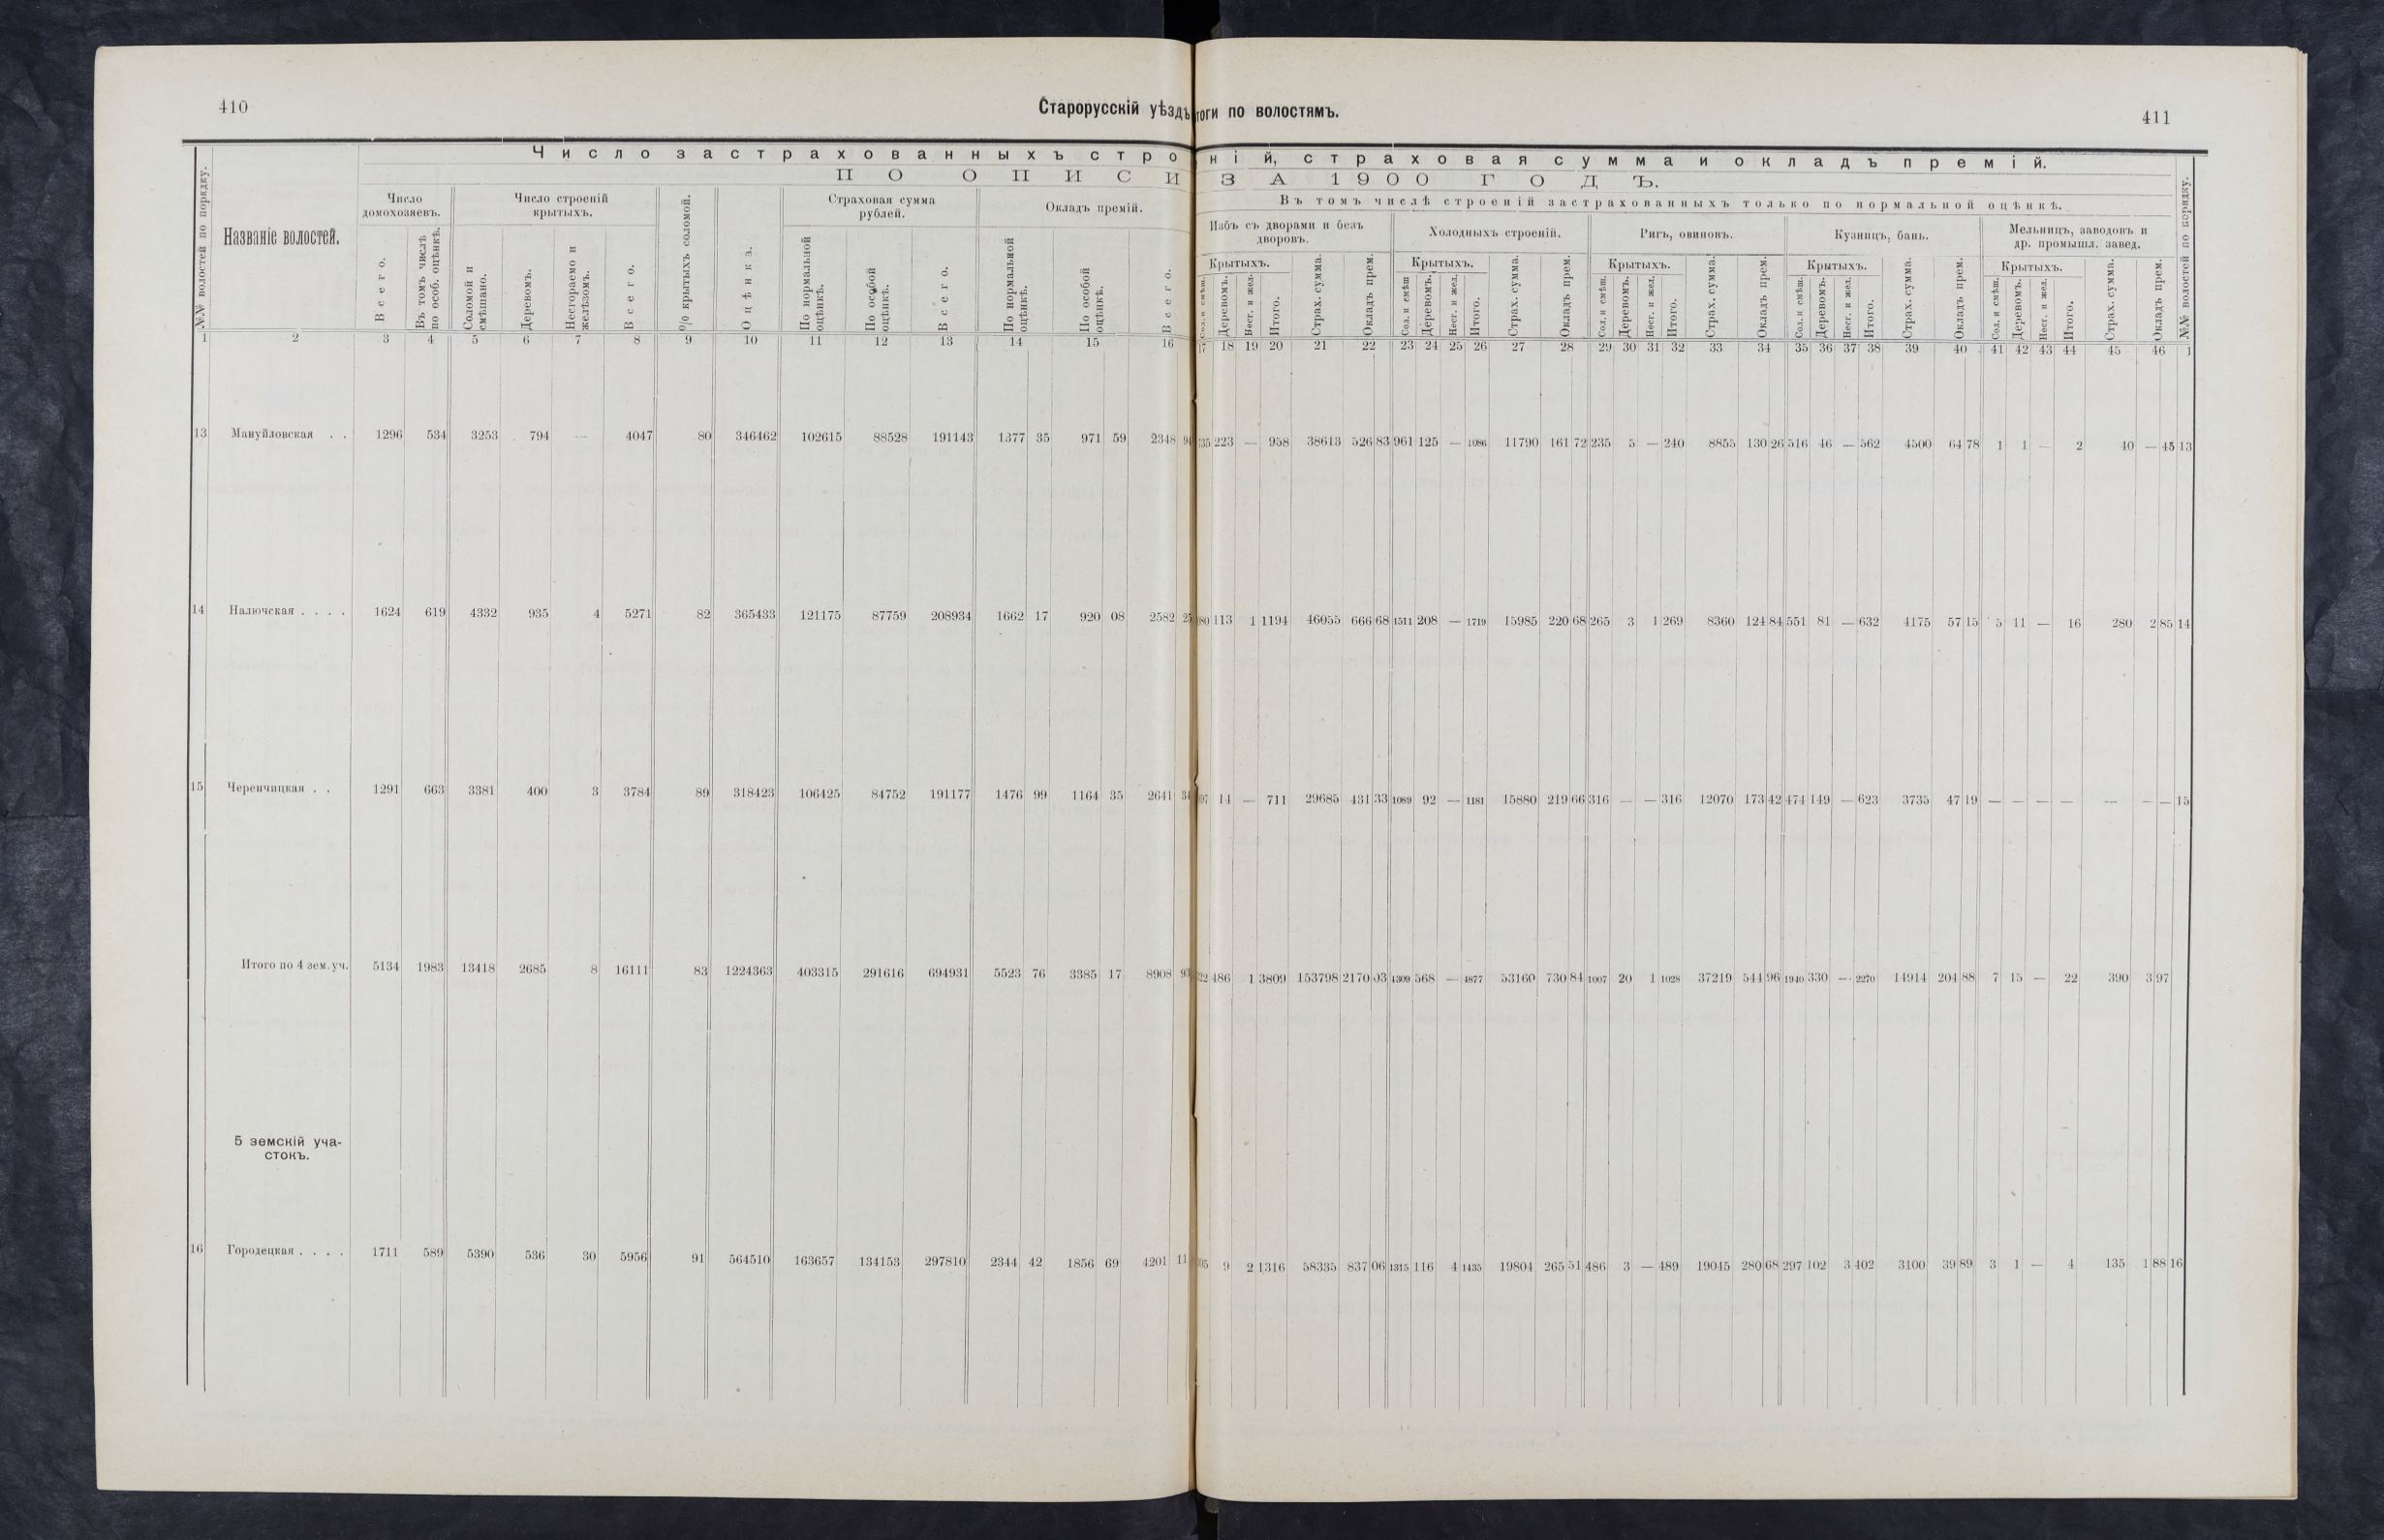 410
Старорусскій уѣздъ
тоги по волостямъ.
411
Число застрахованныхъ стро
ній, страховая сумма и окладъ премій.
ПО ОПИСИ
ЗА 1900 ГОДЪ.
Въ томъ числѣ строеній застрахованныхъ только по нормальной оцѣнкѣ.
№№ волостей по порядку.
Названіе волостей.
Число домохозяевъ.
Всего.
Въ томъ числѣ по особ. оцѣнкѣ.
Число строеній крытыхъ.
Соломой и смѣшано.
Деревомъ.
Несгораемо и желѣзомъ.
Всего.
% крытыхъ соломой.
Оцѣнка.
Страховая сумма рублей.
По нормальной оцѣнкѣ.
По особой оцѣнкѣ.
Всего.
Окладъ премій.
По нормальной оцѣнкѣ.
По особой оцѣнкѣ.
Всего.
Избъ съ дворами и безъ дворовъ.
Крытыхъ.
Сол. и смѣш. Деревомъ. Несг. и жел. Итого. Страх. сумма. Окладъ прем.
Холодныхъ строеній.
Крытыхъ.
Сол. и смѣш Деревомъ. Несг. и жел. Итого. Страх. сумма. Окладъ прем.
Ригъ, овиновъ.
Крытыхъ.
Сол. и смѣш. Деревомъ. Несг. и жел. Итого. Страх. сумма. Окладъ прем.
Кузницъ, бань.
Крытыхъ.
Сол. и смѣш. Деревомъ. Несг. и жел. Итого. Страх. сумма. Окладъ прем.
Мельницъ, заводовъ и др. промышл. завед.
Крытыхъ.
Сол. и смѣш. Деревомъ. Несг. и жел. Итого. Страх. сумма. Окладъ прем.
№№ волостей по порядку.
1 2 3 4 5 6 7 8 9 10 11 12 13 14 15 16 17 18 19 20 21 22 23 24 25 26 27 28 29 30 31 32 33 34 35 36 37 38 39 40 41 42 43 44 45 46 1
13 Мануйловская . . 1296 534 3253 794 — 4047 80 346462 102615 88528 191143 1377 35 971 59 2348 94 735 223 — 958 38613 526 83 961 125 — 1086 11790 161 72 235 5 — 240 8855 130 26 516 46 — 562 4500 64 78 1 1 — 2 40 — 45 13
14 Налючская . . . . 1624 619 4332 935 4 5271 82 365433 121175 87759 208934 1662 17 920 08 2582 25 080 113 1 1194 46055 666 68 1511 208 — 1719 15985 220 68 265 3 1 269 8360 124 84 551 81 — 632 4175 57 15 5 11 — 16 280 2 85 14
15 Черенчицкая . . 1291 663 3381 400 3 3784 89 318423 106425 84752 191177 1476 99 1164 35 2641 34 697 14 — 711 29685 431 33 1089 92 — 1181 15880 219 66 316 — — 316 12070 173 42 474 149 — 623 3735 47 19 — — — — — — — 15
Итого по 4 зем. уч. 5134 1983 13418 2685 8 16111 83 1224363 403315 291616 694931 5523 76 3385 17 8908 93 22 486 1 3809 153798 2170 03 4309 568 — 4877 53160 730 84 1007 20 1 1028 37219 544 96 1940 330 — 2270 14914 204 88 7 15 — 22 390 3 97
5 земскій уча-
стокъ.
16 Городецкая . . . . 1711 589 5390 536 30 5956 91 564510 163657 134153 297810 2344 42 1856 69 4201 11 05 9 2 1316 58335 837 06 1315 116 4 1435 19804 265 51 486 3 — 489 19045 280 68 297 102 3 402 3100 39 89 3 1 — 4 135 1 88 16